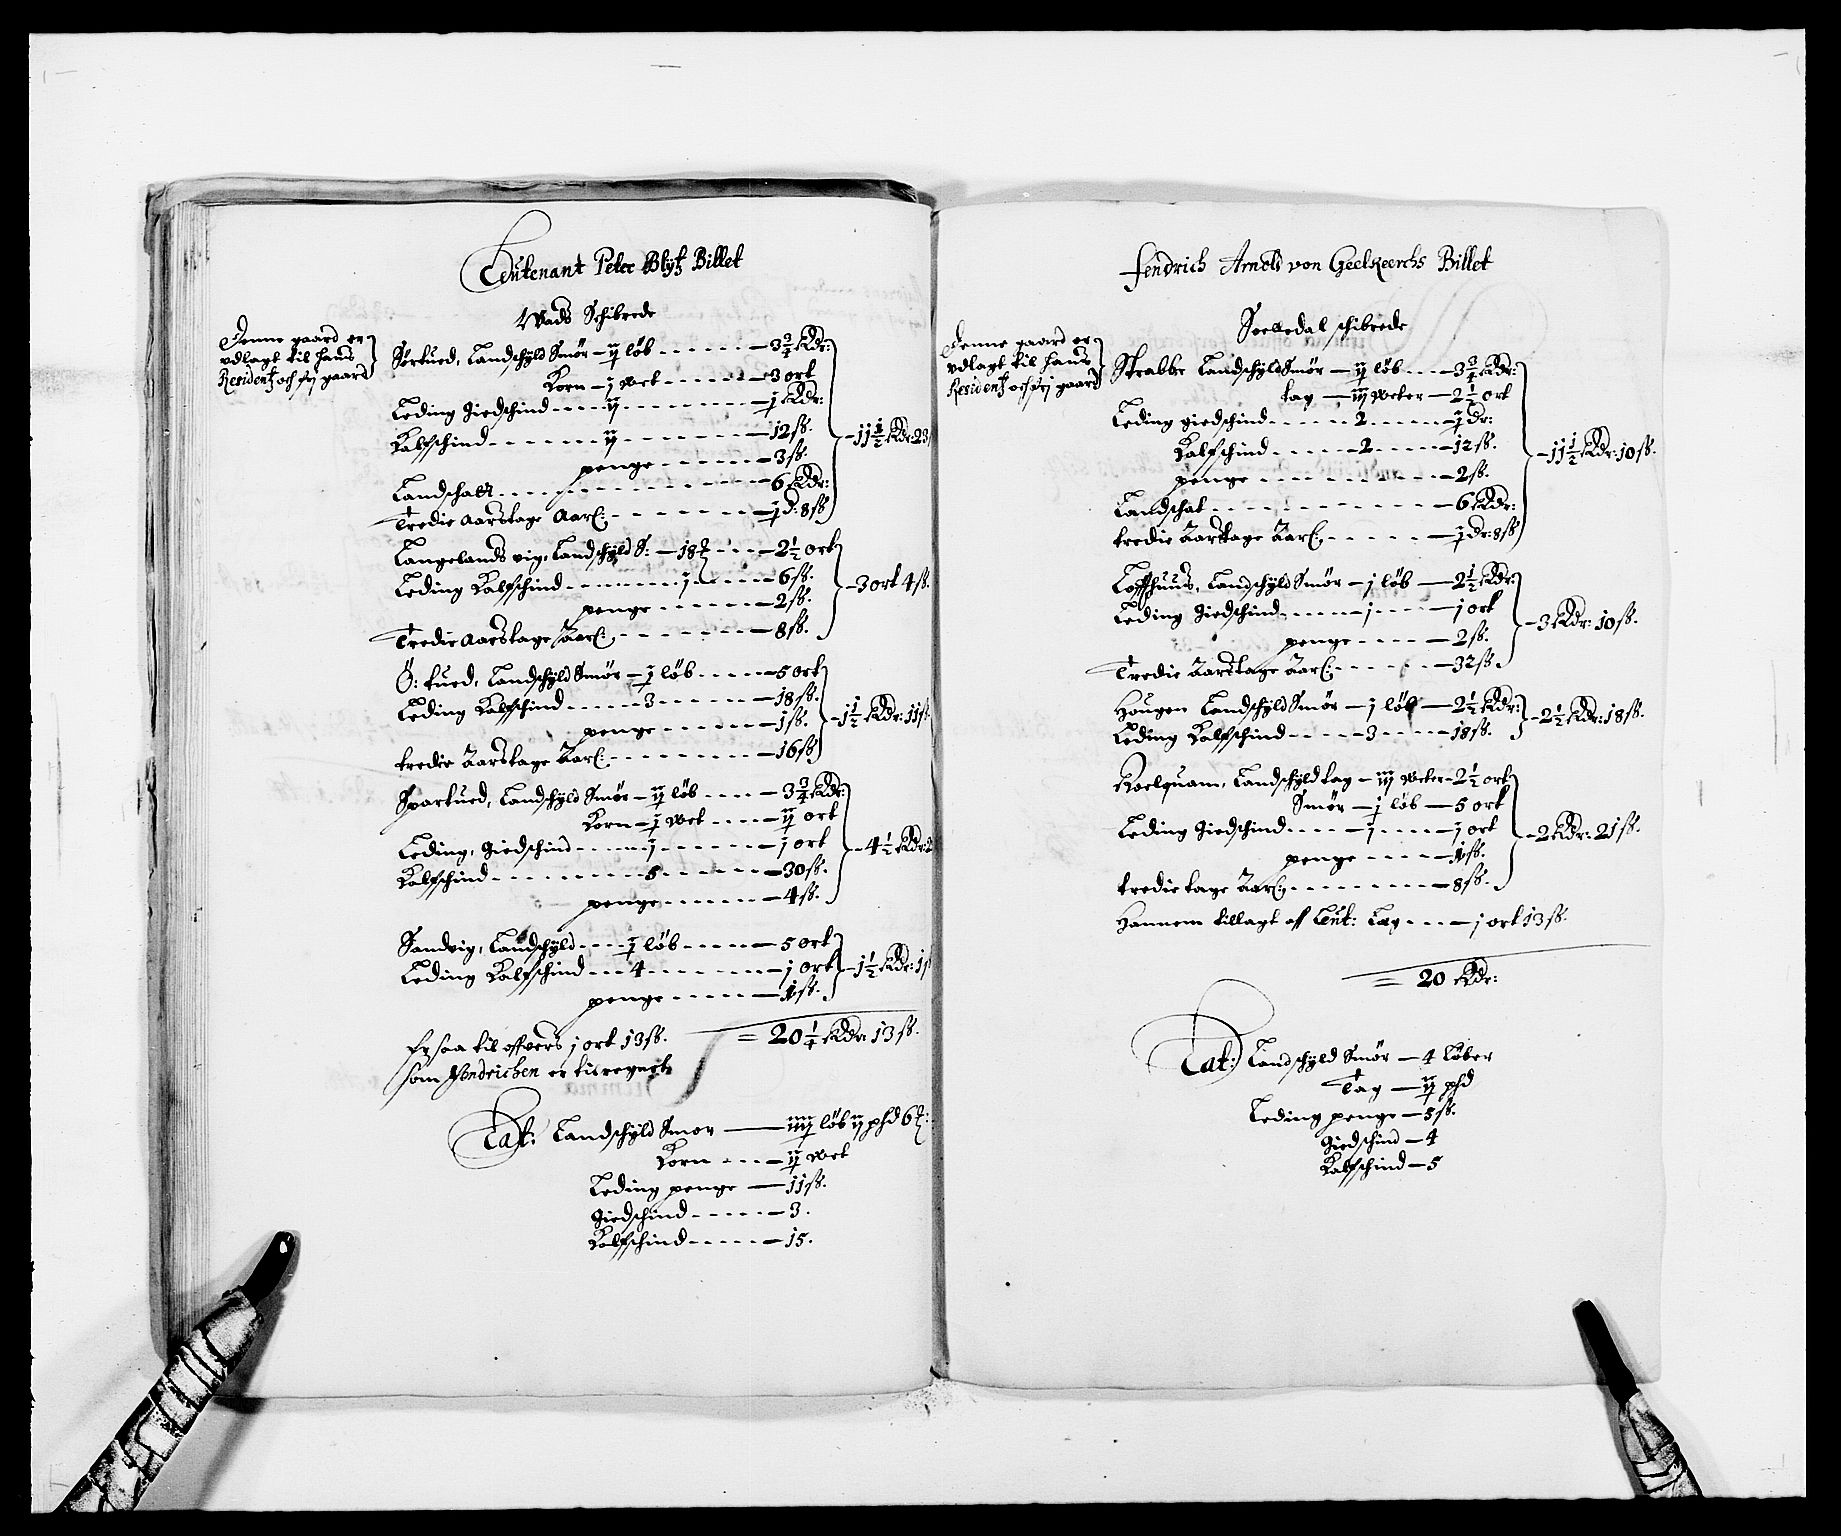 Leutenant Peter Blyt Billet
Wads Schibrede
Denne gaard er
udlagt til hans
Resident och frj gaard
Sørtued, Landschyld Smør — ij løb — 3 3/4 Rdr:
Korn — j wet — 3 ort
Leding Giedschind — ij — j Rdr:
Kalfschind — ij — 12 ß.
penge — 3 ß.
Landschatt — 6 Rdr:
Tredie Aarstage Aarl: — j d: 8 ß
— 11 1/2 Rdr: 23
Langelands vig, Landschyld S: — 18 — 2 1/2 ort
Leding Kalfschind — 1 — 6 ß.
penge — 2 ß.
Tredie Aarstage Aarl: — 8 ß.
— 3 ort 4 ß.
Ø: tued, Landschyld Smør — j løb — 5 ort
Leding Kalfschind — 3 — 18 ß.
penge — 1 ß.
tredie Aarstage Aarl: — 16 ß
— 1 1/2 Rdr: 11 ß
Spartued, Landschyld Smør — ij løb — 3 3/4 Rdr:
Korn — j wet — ij ort
Leding, Giedschind — 1 — j ort
Kalfschind — 5 — 30 ß.
penge — 4 ß.
— 4 1/2 Rdr: 2
Sandvig, Landschyld — j løb — 5 ort
Leding Kalfschind — 4 — j ort
penge — 1 ß.
— 1 1/2 Rdr: 1 ß
Er saa til offvers j ort 13 ß.
som Fendrichen er tilregnet
= 20 1/4 Rdr: 13 ß.
Lat: Landschyld Smør — iiij løb ij phd 6
Korn — ij wet
Leding penge — 11 ß.
Giedschind — 3.
Kalfschind — 15.
Fendrich Arnold von Geelkeerchs Billet
Sreedal schibrede
Denne gaard er
udlagt til hans
Resident och frj gaard
Strabbe Landschyld Smør — ij løb — 3 3/4 Rdr:
tag — iij weter — 2 1/2 ort
Leding giedschind — 2 — j Dr:
Kalfschind — 2 — 12 ß.
penge — 2 ß.
Landschat — 6 Rdr:
tredie Aarstage Aarl: — j Dr: 8 ß
— 11 1/2 Rdr: 10 ß.
Lofthuus, Landschyld Smør — j løb — 2 1/2 Rdr:
Leding Giedschind — 1 — j ort
penge — 2 ß.
Tredie Aarstage Aarl: — 32 ß.
— 3 Rdr: 10 ß.
Hougen Landschyld Smør — j løb — 2 1/2 Rdr:
Leding Kalfschind — 3 — 18 ß.
— 2 1/2 Rdr: 18 ß.
Roelquam, Landschyld tag — iij weter — 2 1/2 ort
Smør — j løb — 5 ort
Leding Giedschind — 1 — j ort
penge — 1 ß.
tredie tage Aarl: — 8 ß.
— 2 Rdr: 21 ß.
Hannem tillagt aff Leut: Læg — j ort 13 ß.
= 20 Rdr:
Lat: Landschyld Smør — 4 Løber
Tag — ij phd
Leding penge — 5 ß.
Giedschind — 4
Kalfschind — 5